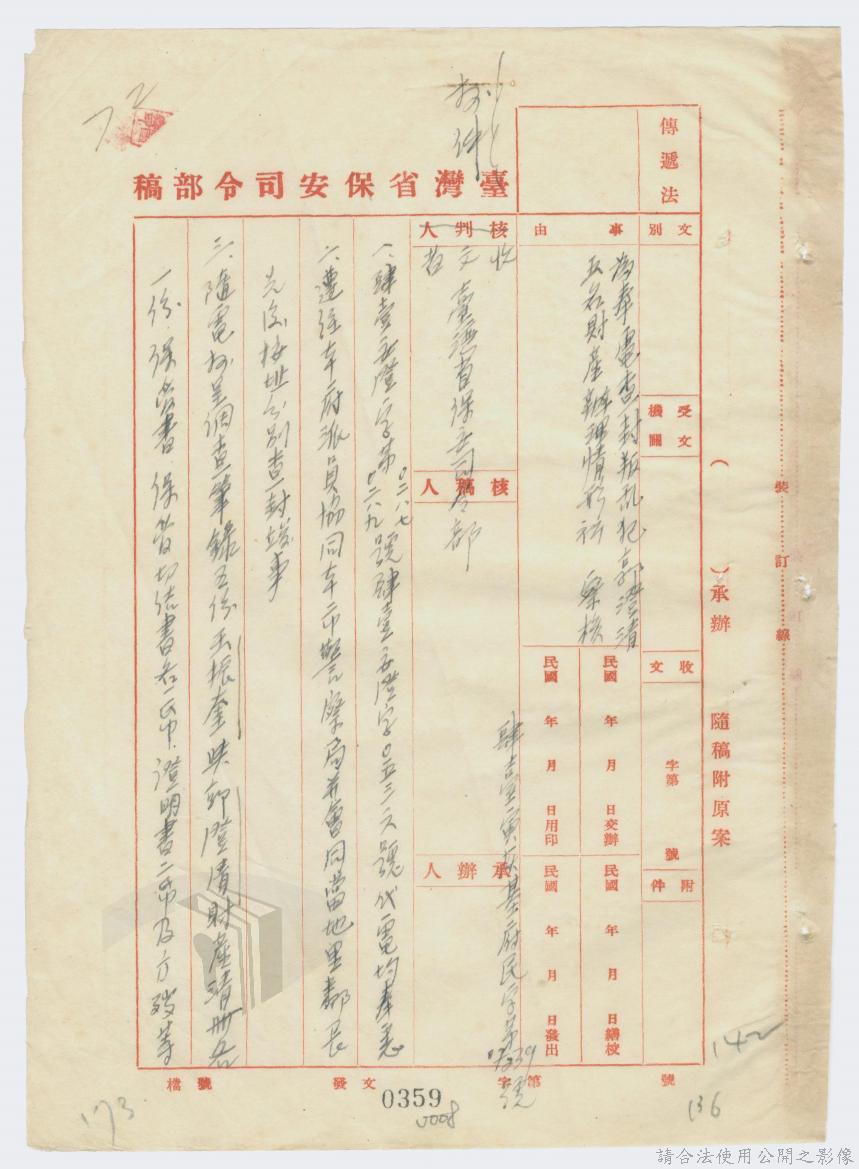 抄件
72
臺灣省保安司令部稿
傳遞法
文別
事由
為奉電查封叛亂犯郭澄清
五名財產辦理情形祈 察核
受文機關
收文
字第
號
附件
民國 年 月 日交辦
民國 年 月 日繕校
民國 年 月 日用印
民國 年 月 日發出
核判人
核稿人
承辦人
收文者 臺灣省保安司令部
肆壹寅 基府民字第 號
一、肆壹安澄字第0二八七 0二八九號肆壹安澄字0五三六號代電均奉悉
二、遵經本府派員協同本市警察局並會同當地里鄰長
先後按址分別查封竣事
三、隨電抄呈調查筆錄五份王振奎與郭澄清財產清冊各
一份、保管書、保管切結書各一帋、證明書二帋及方 等
檔號
發文 字第 號
0359
0008
173
136
142
( )承辦
隨稿附原案
裝訂線
請合法使用公開之影像